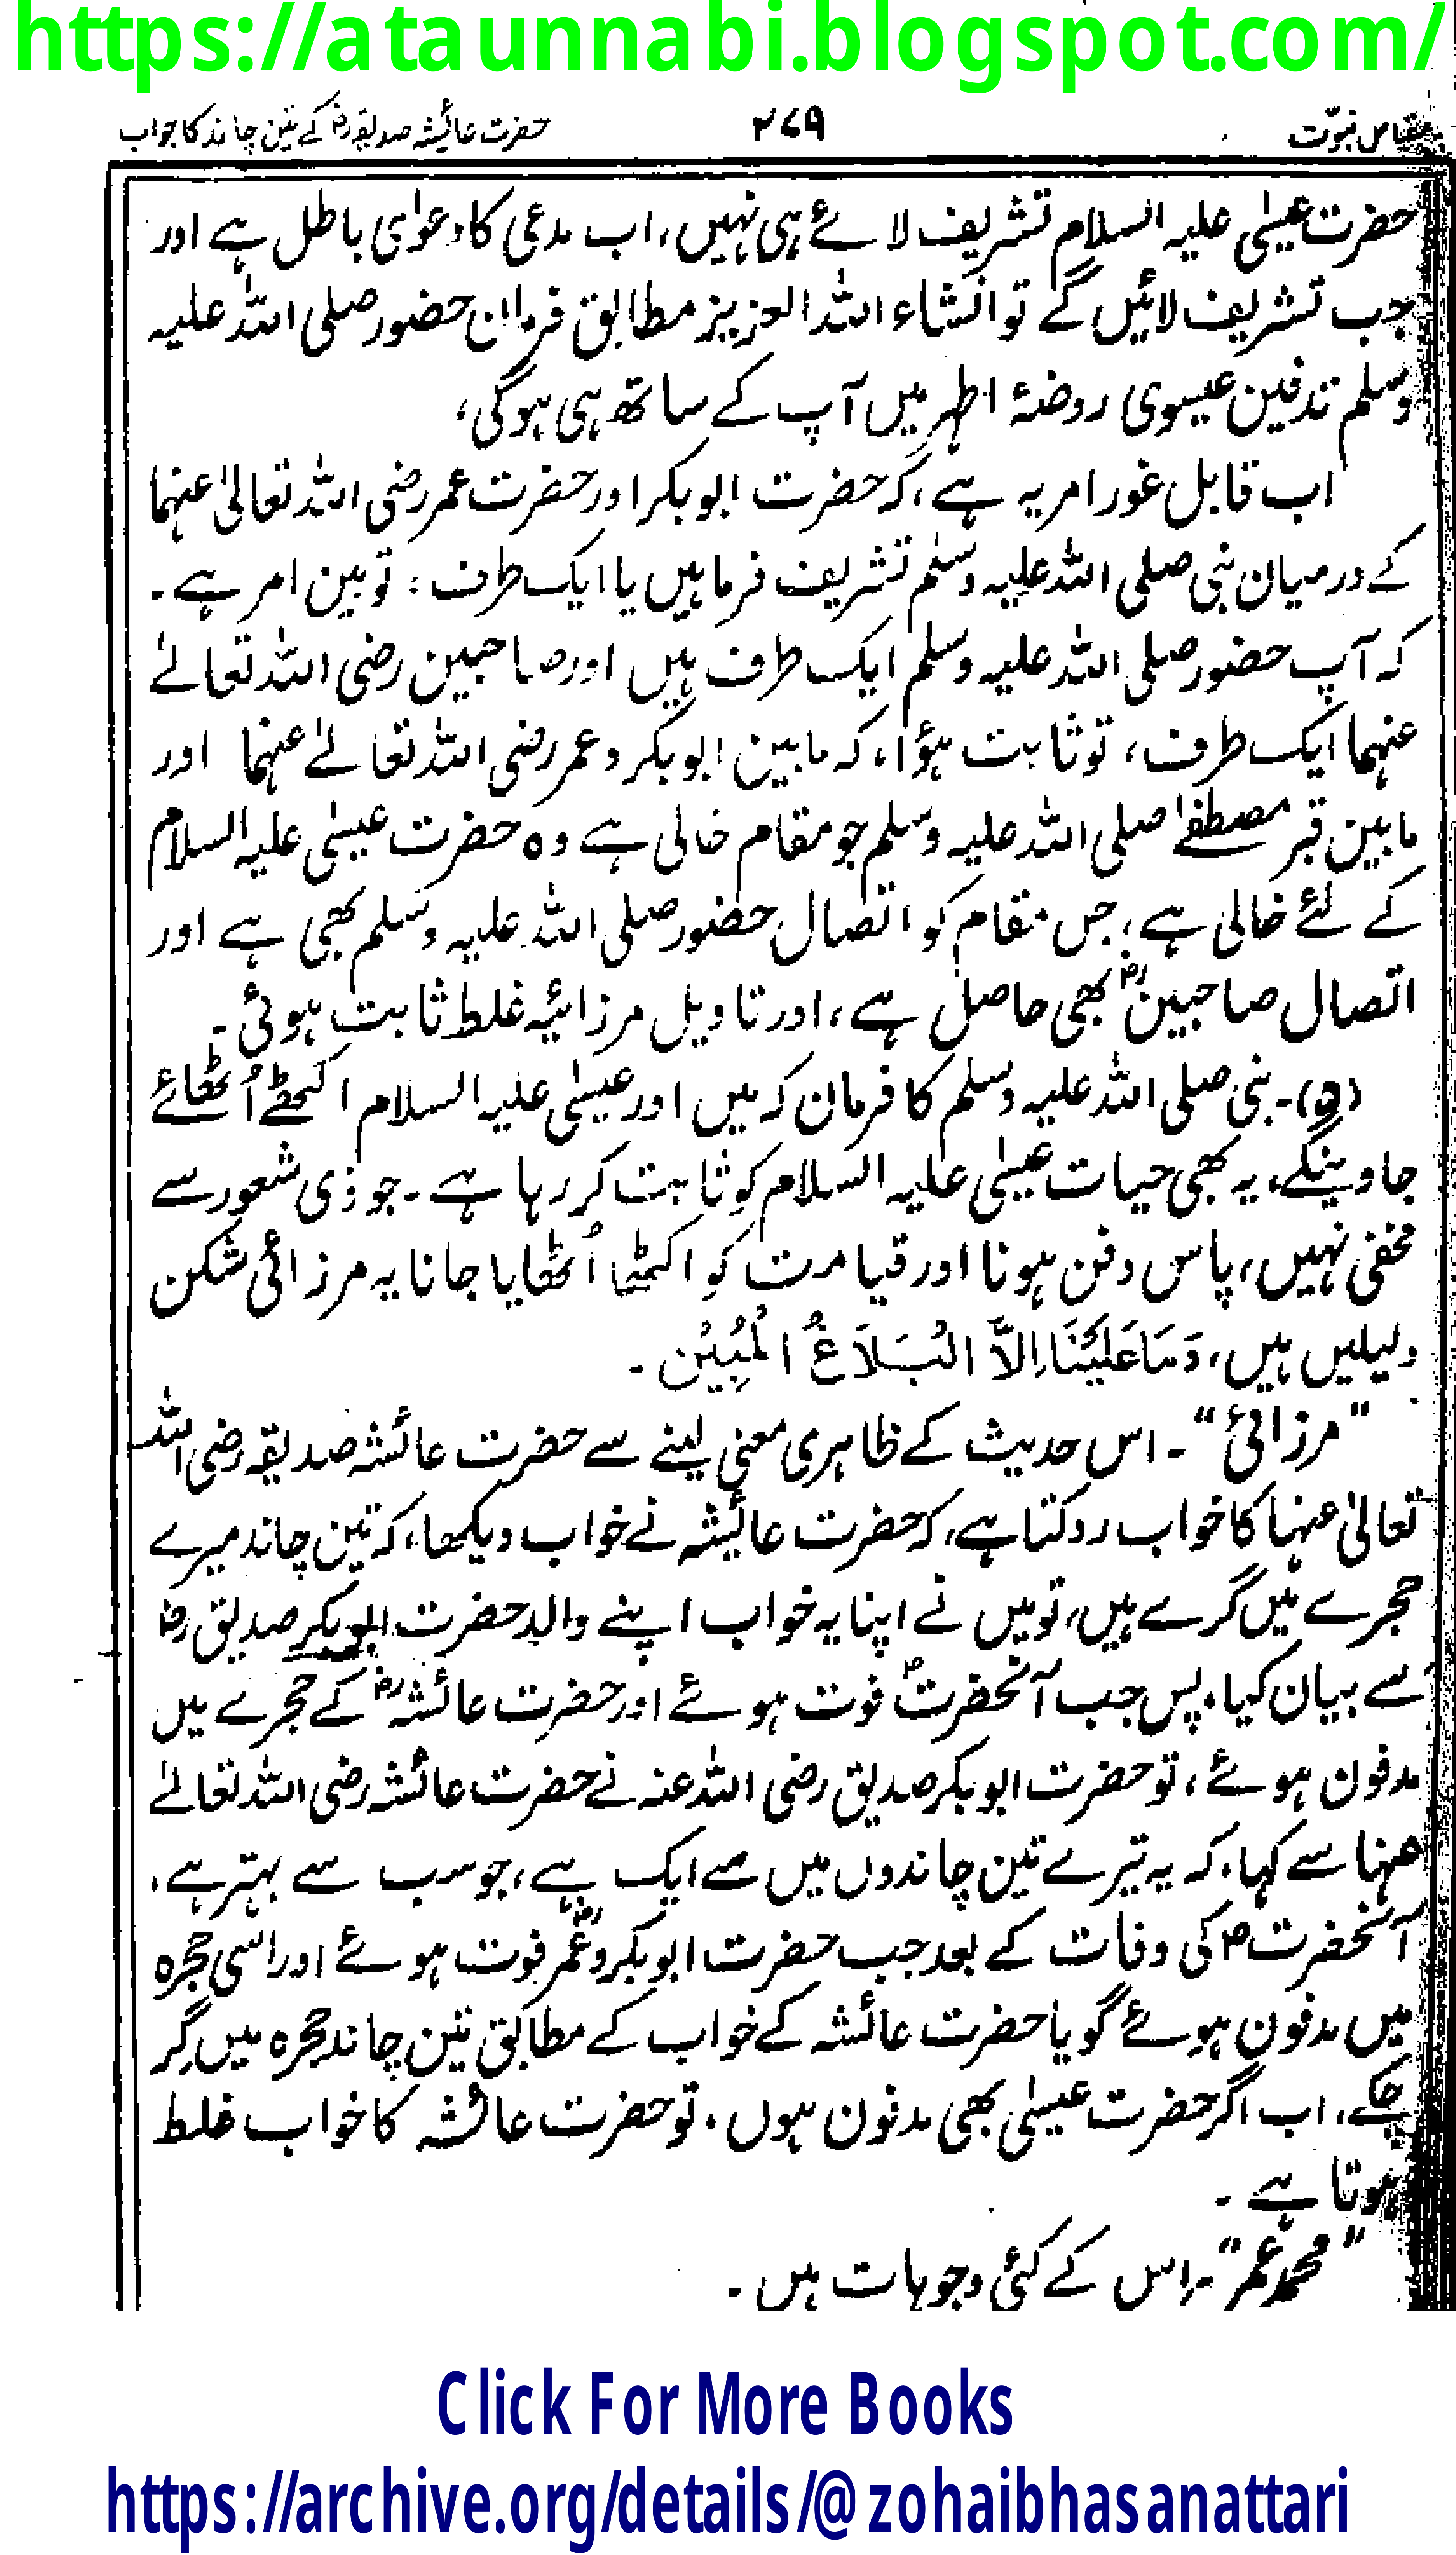 https://ataunnabi.blogspot.com/
مقیاس نبوّت ۲۷۹ حضرت عائیشہ صدیقہ رض کے تین چاند کا جواب
حضرت عیسٰی علیہ السلام تشریف لائے ہی نہیں، اب مدعی کا دعوٰی باطل ہے اور
جب تشریف لائیں گے تو انشاء اللہ العزیز مطابق فرمان حضور صلی اللہ علیہ
وسلم تدفین عیسوی روضۂ اطہر میں آپ کے ساتھ ہی ہوگی،
اب قابل غور امر یہ ہے، کہ حضرت ابوبکر اور حضرت عمر رضی اللہ تعالیٰ عنہما
کے درمیان نبی صلی اللہ علیہ وسلم تشریف فرما ہیں یا ایک طرف : تو بین امر ہے۔
کہ آپ حضور صلی اللہ علیہ وسلم ایک طرف ہیں اور صاحبین رضی اللہ تعالےٰ
عنہما ایک طرف، تو ثابت ہؤا، کہ مابین ابوبکر و عمر رضی اللہ تعالےٰ عنہما اور
مابین قبر مصطفےٰ صلی اللہ علیہ وسلم جو مقام خالی ہے وہ حضرت عیسٰی علیہ السلام
کے لئے خالی ہے، جس مقام کو اتصال حضور صلی اللہ علیہ وسلم بھی ہے اور
اتصال صاحبین رض بھی حاصل ہے، اور تاویل مرزائیہ غلط ثابت ہوئی۔
(۵)۔ نبی صلی اللہ علیہ وسلم کا فرمان کہ میں اور عیسٰی علیہ السلام اکٹھے اُٹھائے
جاوینگے، یہ بھی حیات عیسٰی علیہ السلام کو ثابت کر رہا ہے۔ جو ذی شعور سے
مخفی نہیں، پاس دفن ہونا اور قیامت کو اکٹھا اُٹھایا جانا یہ مرزائی شکن
دلیلیں ہیں، وَمَا عَلَیْنَا اِلَّا الْبَلَاغُ الْمُبِیْن۔
"مرزائی"۔ اس حدیث کے ظاہری معنی لینے سے حضرت عائشہ صدیقہ رضی اللہ
تعالیٰ عنہا کا خواب روکتا ہے، کہ حضرت عائیشہ نے خواب دیکھا، کہ تین چاند میرے
حجرے میں گرے ہیں، تو میں نے اپنا یہ خواب اپنے والد حضرت ابوبکر صدیق رض
سے بیان کیا، پس جب آنحضرت ؐ فوت ہوئے اور حضرت عائشہ رض کے حجرے میں
مدفون ہوئے، تو حضرت ابوبکر صدیق رضی اللہ عنہ نے حضرت عائشہ رضی اللہ تعالےٰ
عنہا سے کہا، کہ یہ تیرے تین چاندوں میں سے ایک ہے، جو سب سے بہتر ہے،
آنحضرت ص کی وفات کے بعد جب حضرت ابوبکر و عمر رض فوت ہوئے اور اسی حجرہ
میں مدفون ہوئے گویا حضرت عائشہ کے خواب کے مطابق تین چاند حجرہ میں گِر
چکے، اب اگر حضرت عیسٰی بھی مدفون ہوں۔ تو حضرت عائشہ کا خواب غلط
ہوتا ہے۔
"محمد عمر"۔ اس کے کئی وجوہات ہیں۔
Click For More Books
https://archive.org/details/@zohaibhasanattari